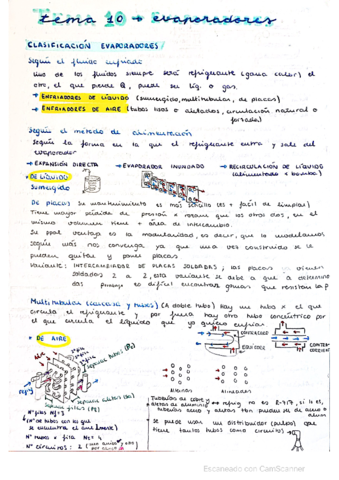 tema 10 → evaporadores
CLASIFICACIÓN EVAPORADORES
Según el fluido enfriado
Uno de los fluidos siempre será refrigerante (gana calor) el
otro, el que pierde Q, puede ser líq. o gas.
→ ENFRIADORES DE LÍQUIDO (sumergido, multitubular, de placas)
→ ENFRIADORES DE AIRE (tubos lisos o aletados, circulación natural o
forzada)
Según el método de alimentación
Según la forma en la que el refrigerante entra y sale del
evaporador
→ EXPANSIÓN DIRECTA → EVAPORADOR INUNDADO → RECIRCULACIÓN DE LÍQUIDO
(alimentado x bomba)
• DE LÍQUIDO
Sumergido
De placas Su mantenimiento es más sencillo (es + fácil de limpiar)
Tiene mayor pérdida de presión x rozam que los otros dos, en el
mismo volumen tiene + área de intercambio.
Su ppal ventaja es la modularidad, es decir, que lo modelamos
según más nos convenga ya que una vez construido se
pueden quitar y poner placas
Variante: INTERCAMBIADOR DE PLACAS SOLDADAS, las placas vienen
soldadas 2 a 2, esta variante se debe a que a
das es difícil encontrar gomas que resistan la P
Multitubular (carcasa y tubos) (A doble tubo) Hay un tubo x el que
circula el refrigerante y por fuera hay otro tubo concéntrico por
el que circula el líquido que yo quiero enfriar
• DE AIRE
separación tubos (Pt)
separación filas (Pf)
refrig
EQUICOR.
Nº filas Nf = 3
(Nº de tubos con los que
se encuentra el aire)
Nº tubos x fila Nt = 4
Nº circuitos: 2
Tuberías de cobre y
aletas de aluminio → refrig no es R-717, si lo es,
tuberías acero y aletas tbn pueden ser de acero o
alum
→ se puede usar un distribuidor (pulpo) que
tiene tantos tubos como circuitos
Escaneado con CamScanner